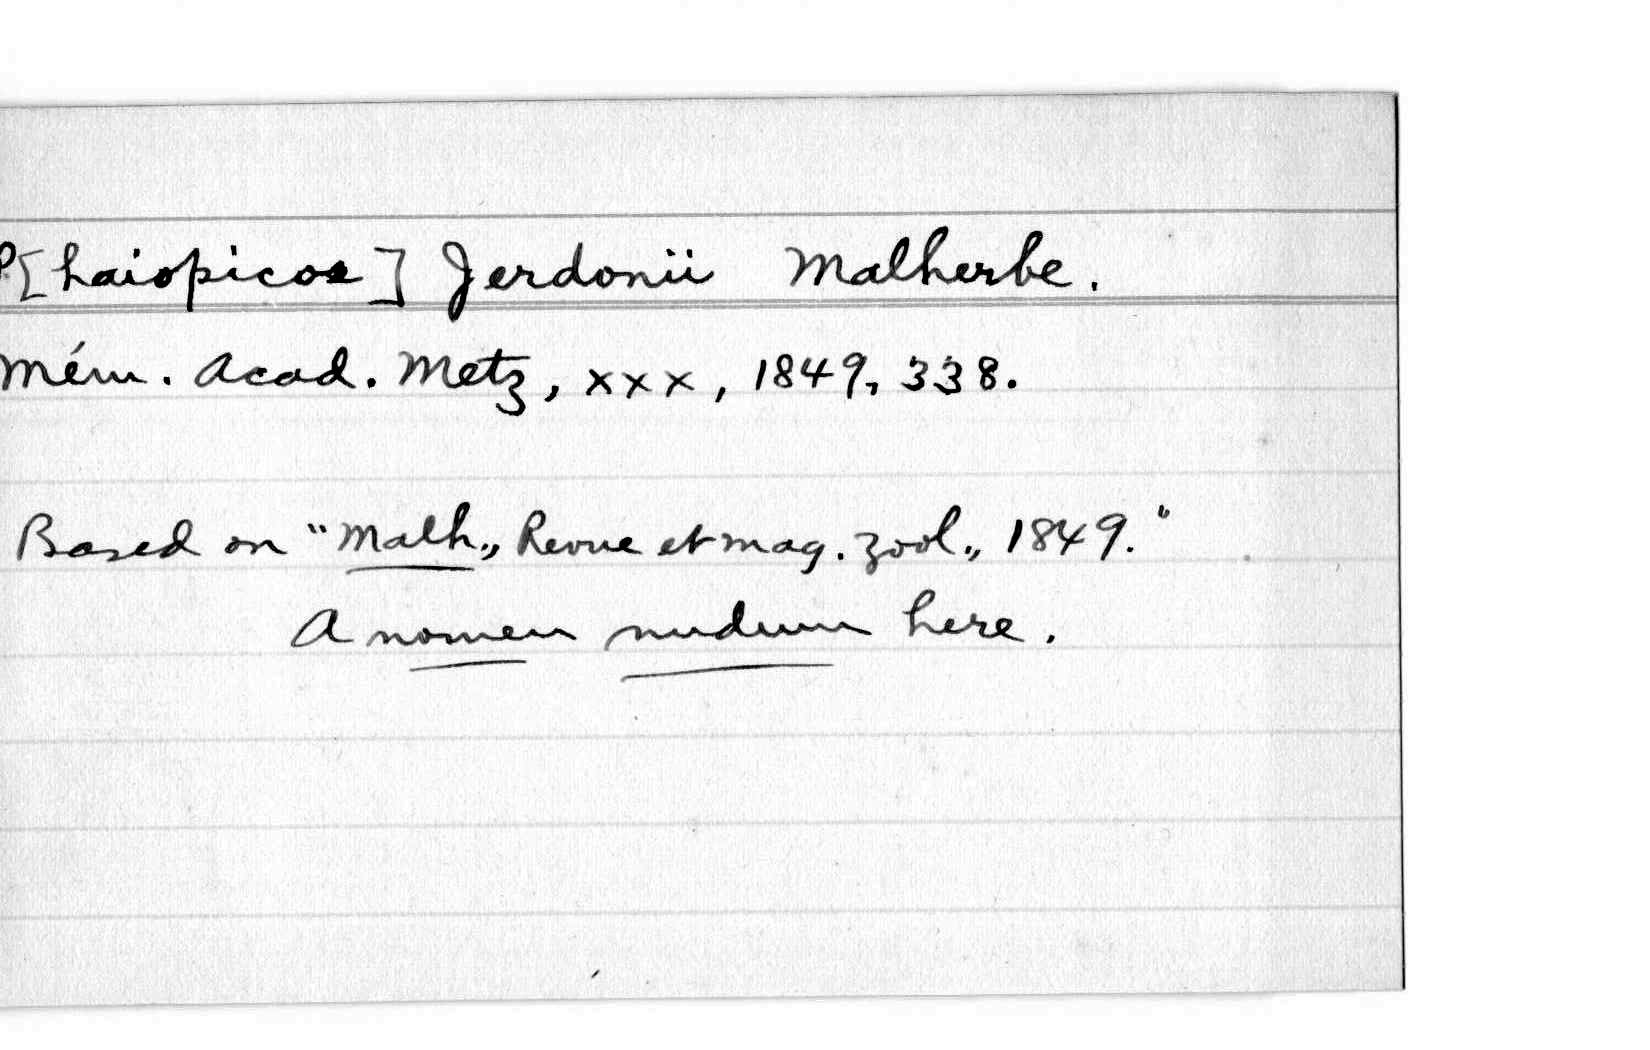 P[haiopicos] Jerdonii Malherbe.
Mém. Acad. Metz, xxx, 1849, 338.
Based on "Malh., Revue et mag. zool., 1849."
A nomen nudum here.